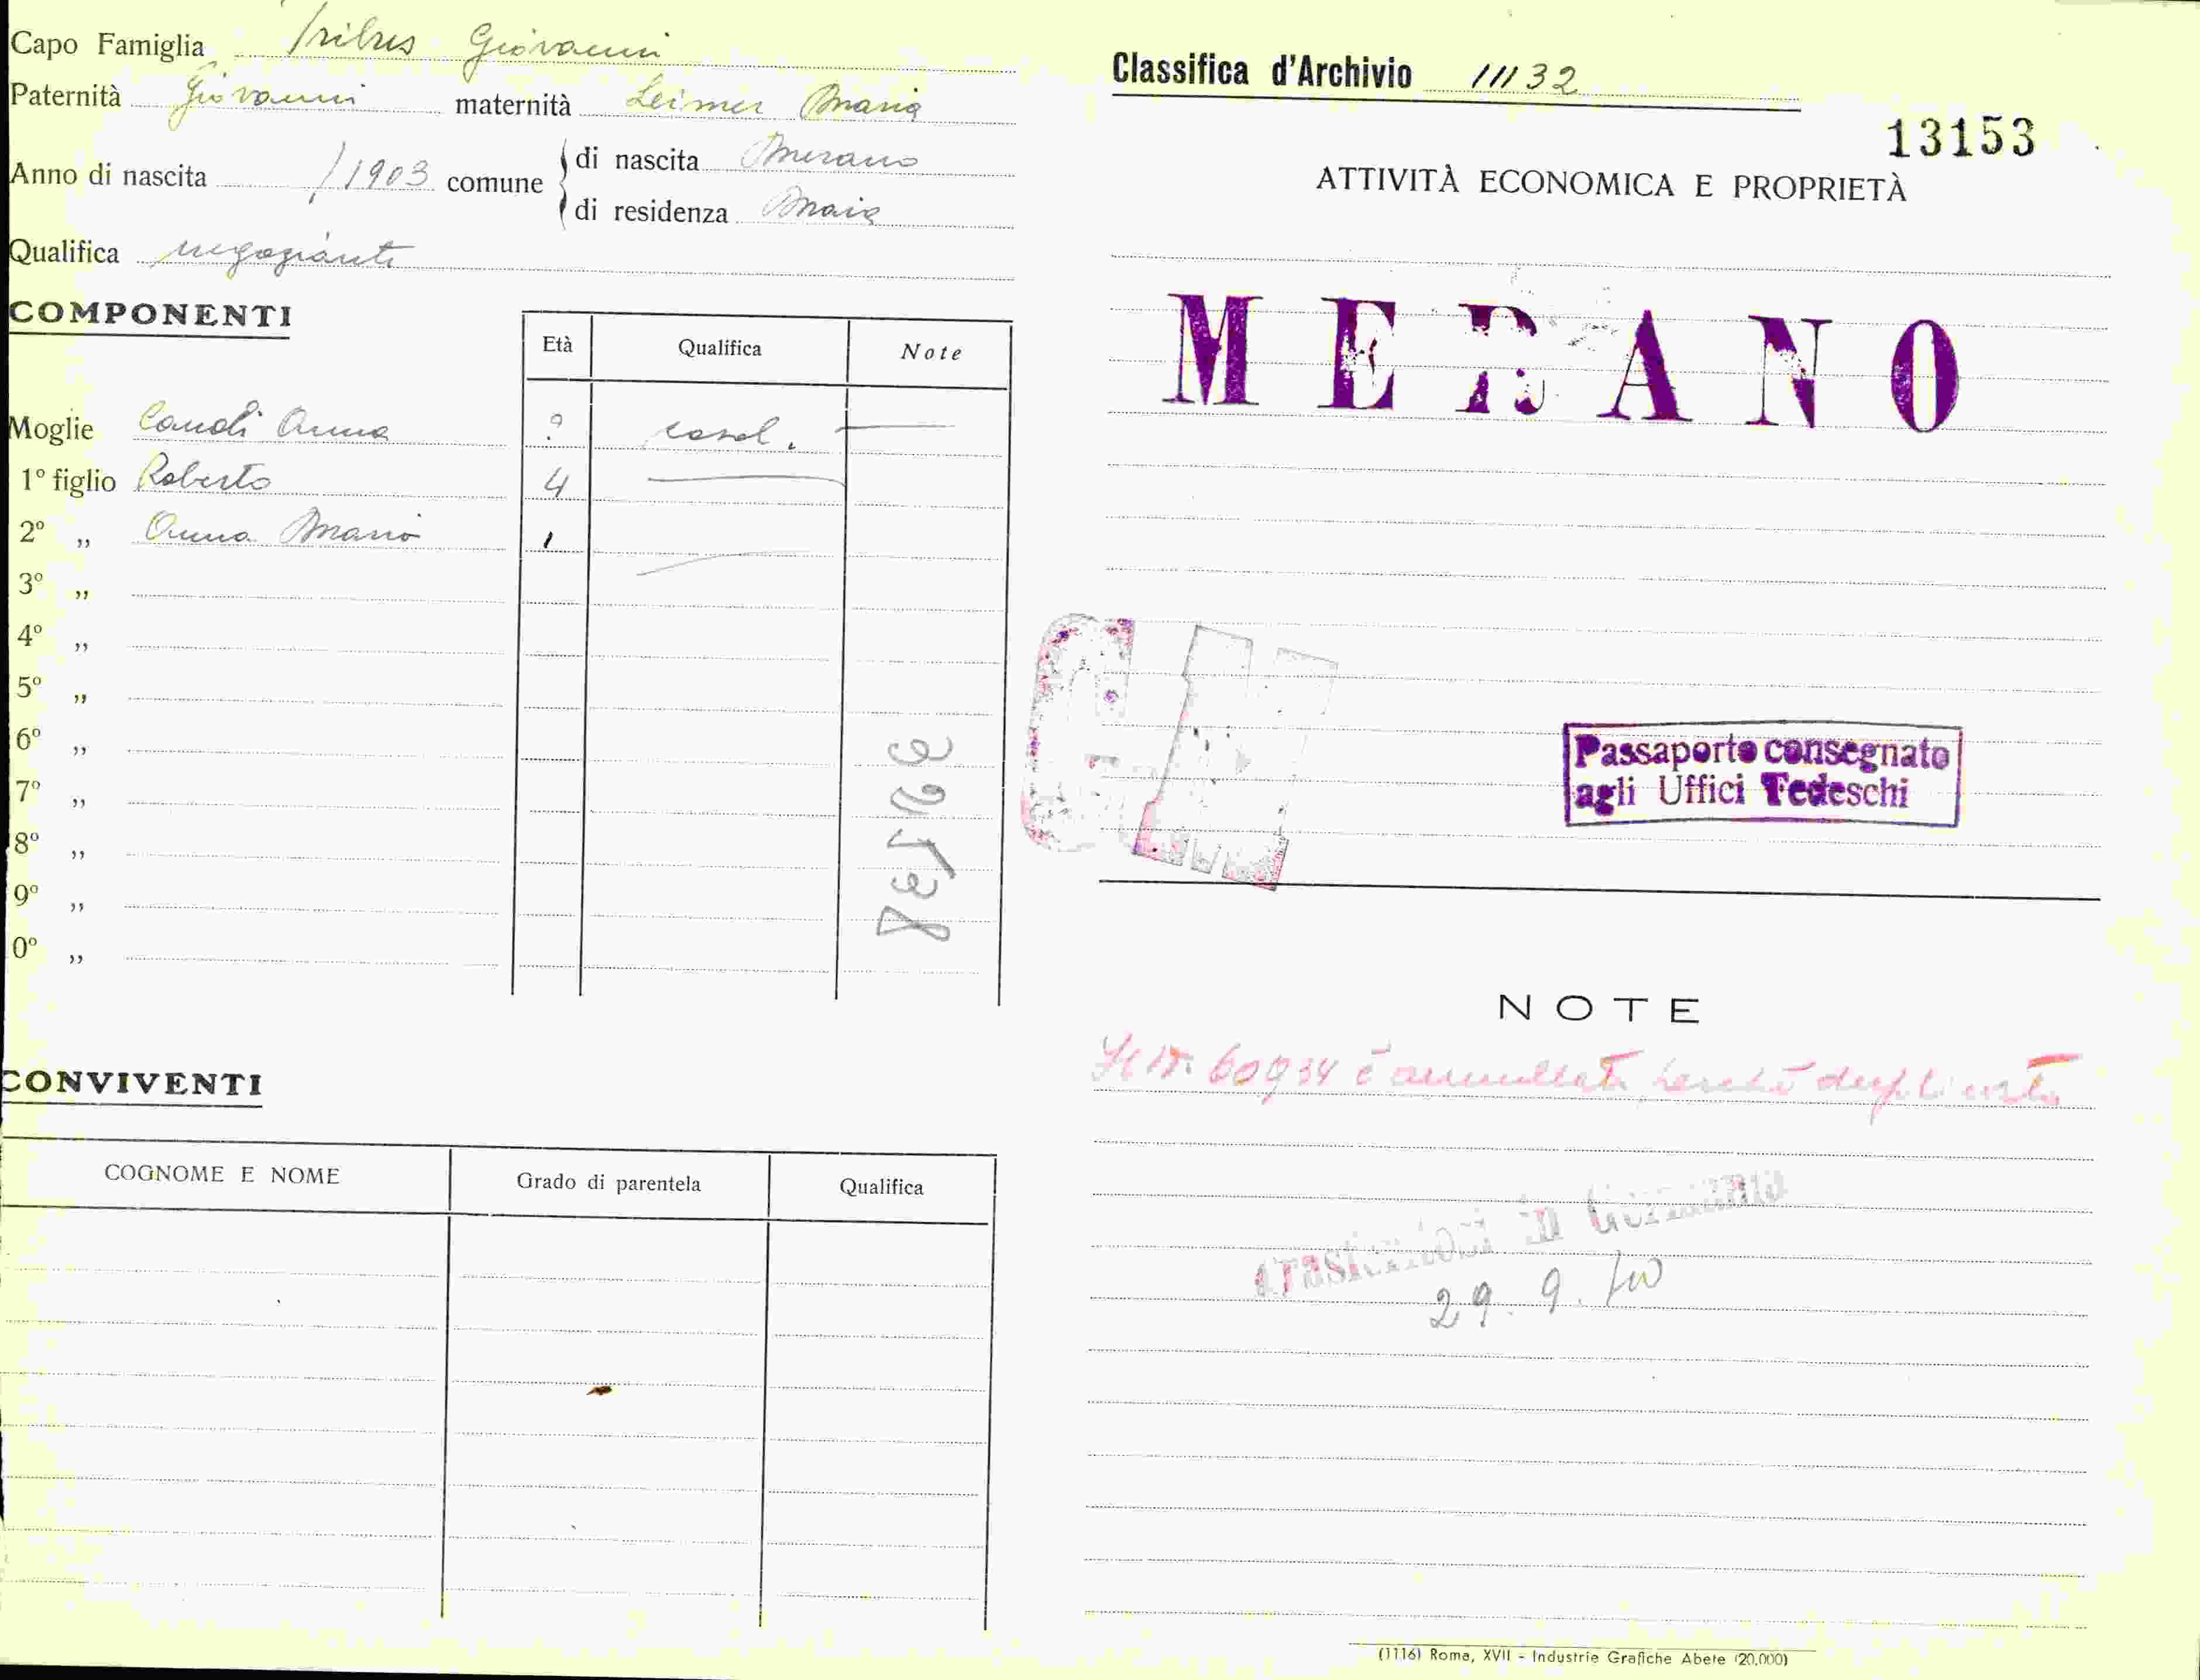 Capo Famiglia Tribus Giovanni
Paternità Giovanni maternità Leimer Maria
Anno di nascita /1903 comune di nascita Merano
di residenza Maia
Qualifica negoziante
COMPONENTI
Età Qualifica Note
Moglie Anna ? casal.
1° figlio Roberto 4
2° „ Anna Maria 1
3° „
4° „
5° „
6° „
7° „
8° „
9° „
0° „
CONVIVENTI
COGNOME E NOME Grado di parentela Qualifica
Classifica d'Archivio 11132
13153
ATTIVITÀ ECONOMICA E PROPRIETÀ
MERANO
Passaporto consegnato
agli Uffici Tedeschi
NOTE
60934 è annullato perchè duplicato
trasferitosi in Germania
29. 9. 40
(1116) Roma, XVII - Industrie Grafiche Abete (20.000)